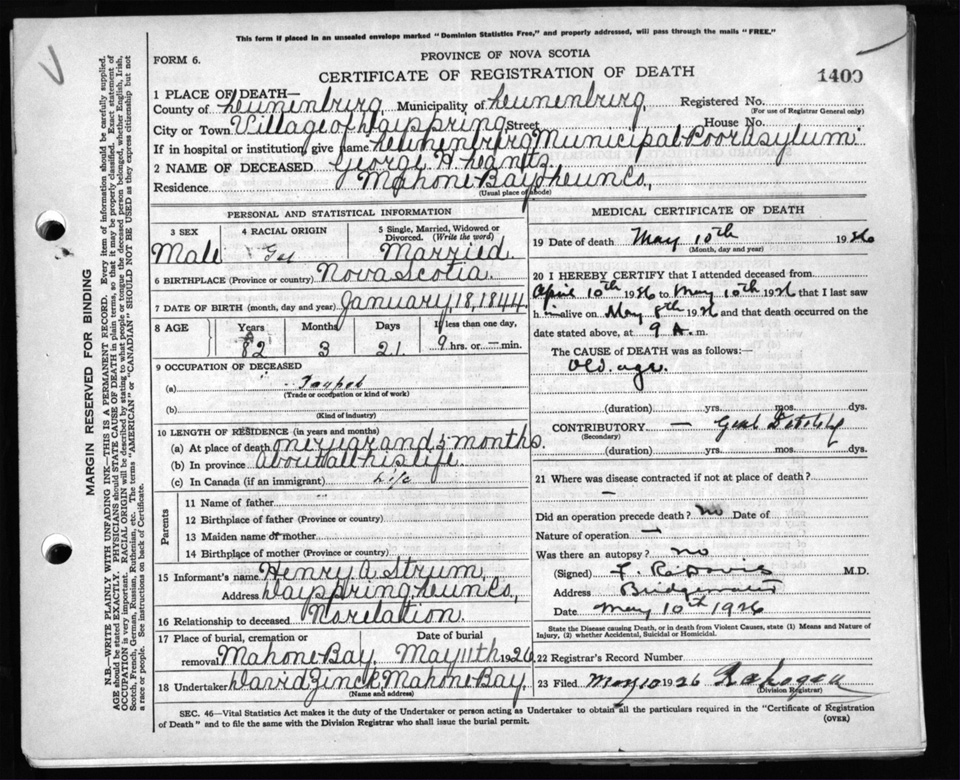 This form if placed in an unsealed envelope marked "Dominion Statistics Free," and properly addressed, will pass through the mails "FREE."
PROVINCE OF NOVA SCOTIA
FORM 6.
CERTIFICATE OF REGISTRATION OF DEATH
1409
1 PLACE OF DEATH—
County of Lunenburg, Municipality of Lunenburg, Registered No.
(For use of Registrar General only)
City or Town Village of Dayspring Street House No.
If in hospital or institution, give name Lunenburg Municipal Poor asylum.
2 NAME OF DECEASED George H.
Residence Mahone Bay Lun Co,
(Usual place of abode)
PERSONAL AND STATISTICAL INFORMATION
3 SEX
4 RACIAL ORIGIN
5 Single, Married, Widowed or Divorced. (Write the word)
Male
Married.
6 BIRTHPLACE (Province or country) Nova Scotia.
7 DATE OF BIRTH (month, day and year) January, 18, 1844.
8 AGE
Years
Months
Days
If less than one day,
82
3
21
9 hrs. or — min.
9 OCCUPATION OF DECEASED
(a)
(Trade or occupation or kind of work)
(b)
(Kind of industry)
10 LENGTH OF RESIDENCE (in years and months)
(a) At place of death one year and 5 months.
(b) In province about all his life
(c) In Canada (if an immigrant) Life
Parents
11 Name of father
12 Birthplace of father (Province or country)
13 Maiden name of mother
14 Birthplace of mother (Province or country)
15 Informant's name Henry A. Strum,
Address Dayspring, Lun Co,
16 Relationship to deceased No relation.
17 Place of burial, cremation or removal Mahone Bay.
Date of burial May 11th 1926
18 Undertaker David Zinck, Mahone Bay.
(Name and address)
MEDICAL CERTIFICATE OF DEATH
19 Date of death May 10th 1926
(Month, day and year)
20 I HEREBY CERTIFY that I attended deceased from
April 10th 1926 to May 10th 1926 that I last saw
him alive on May 8th 1926 and that death occurred on the
date stated above, at 9 A. m.
The CAUSE OF DEATH was as follows:—
Old age.
(duration) yrs. mos. dys.
CONTRIBUTORY —
(Secondary)
(duration) yrs. mos. dys.
21 Where was disease contracted if not at place of death?
—
Did an operation precede death? no Date of
Nature of operation —
Was there an autopsy? no
(Signed) F. R. Davis M.D.
Address Bridgewater
Date May 10th 1926
State the Disease causing Death, or in death from Violent Causes, state (1) Means and Nature of Injury, (2) whether Accidental, Suicidal or Homicidal.
22 Registrar's Record Number
23 Filed May 10 1926
(Division Registrar)
SEC. 46—Vital Statistics Act makes it the duty of the Undertaker or person acting as Undertaker to obtain all the particulars required in the "Certificate of Registration
of Death" and to file the same with the Division Registrar who shall issue the burial permit.
(OVER)
MARGIN RESERVED FOR BINDING
N.B.—WRITE PLAINLY WITH UNFADING INK—THIS IS A PERMANENT RECORD. Every item of information should be carefully supplied.
AGE should be stated EXACTLY. PHYSICIANS should STATE CAUSE OF DEATH in plain terms, so that it may be properly classified. Exact statement of
OCCUPATION is very important. RACIAL ORIGIN will be described by stating to what people or tongue the deceased person belonged, whether English, Irish,
Scotch, French, German, Russian, Ruthenian, etc. The terms "AMERICAN" or "CANADIAN" SHOULD NOT BE USED as they express citizenship but not
a race or people. See instructions on back of Certificate.